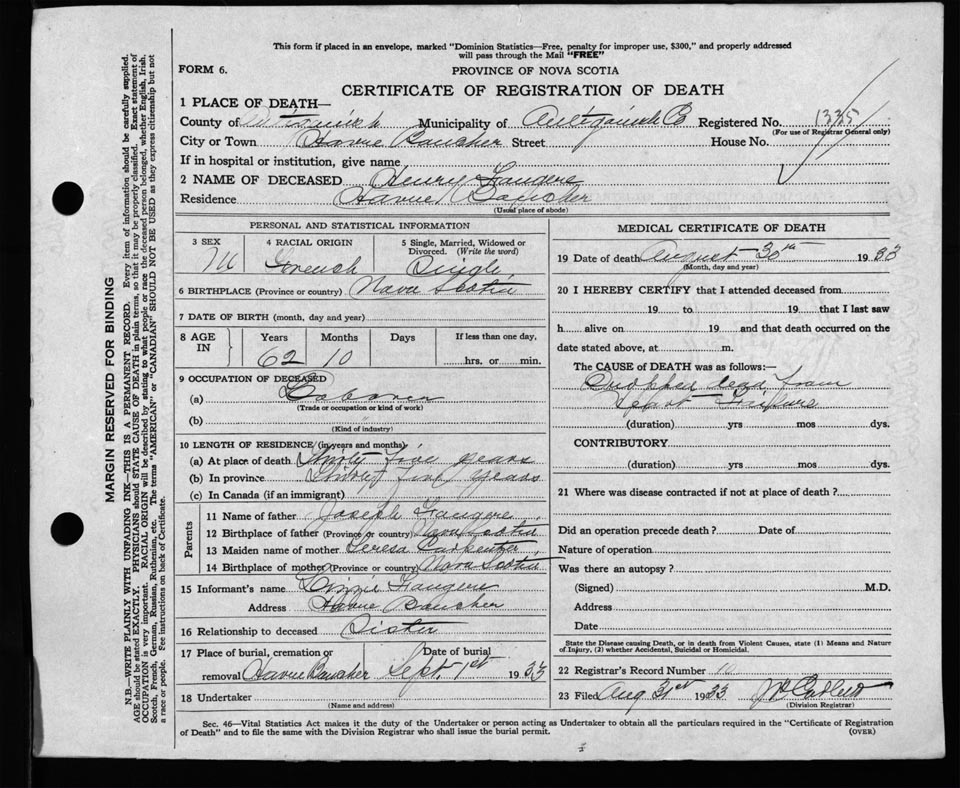 This form if placed in an envelope, marked "Dominion Statistics—Free, penalty for improper use, $300," and properly addressed
will pass through the Mail "FREE"
FORM 6.
PROVINCE OF NOVA SCOTIA
CERTIFICATE OF REGISTRATION OF DEATH
1 PLACE OF DEATH—
County of Municipality of Antigonish Co Registered No. 1335
(For use of Registrar General only)
City or Town Havre Baucher Street House No.
If in hospital or institution, give name
2 NAME OF DECEASED Henry Fangere
Residence Havre Baucher
(Usual place of abode)
PERSONAL AND STATISTICAL INFORMATION
3 SEX 4 RACIAL ORIGIN 5 Single, Married, Widowed or
Divorced. (Write the word)
M French Single
6 BIRTHPLACE (Province or country) Nova Scotia
7 DATE OF BIRTH (month, day and year)
8 AGE IN Years Months Days If less than one day,
62 10 hrs. or min.
9 OCCUPATION OF DECEASED
(a) Laborer
(Trade or occupation or kind of work)
(b)
(Kind of industry)
10 LENGTH OF RESIDENCE (in years and months)
(a) At place of death Thirty five years
(b) In province Thirty five years
(c) In Canada (if an immigrant)
Parents
11 Name of father Joseph Fangere
12 Birthplace of father (Province or country) Nova Scotia
13 Maiden name of mother Teresa Carpenter
14 Birthplace of mother (Province or country) Nova Scotia
15 Informant's name Lizzie Fangere
Address Havre Baucher
16 Relationship to deceased Sister
17 Place of burial, cremation or Date of burial
removal Havre Baucher Sept 1st 1933
18 Undertaker
(Name and address)
MEDICAL CERTIFICATE OF DEATH
19 Date of death August 30th 1933
(Month, day and year)
20 I HEREBY CERTIFY that I attended deceased from
19 to 19 that I last saw
h alive on 19 and that death occurred on the
date stated above, at m.
The CAUSE of DEATH was as follows:—
Dropped dead from
(duration) yrs mos dys.
CONTRIBUTORY
(duration) yrs mos dys.
21 Where was disease contracted if not at place of death?
Did an operation precede death? Date of
Nature of operation
Was there an autopsy?
(Signed) M.D.
Address
Date
State the Disease causing Death, or in death from Violent Causes, state (1) Means and Nature
of Injury, (2) whether Accidental, Suicidal or Homicidal.
22 Registrar's Record Number 10
23 Filed Aug 31st 1933
(Division Registrar)
Sec. 46—Vital Statistics Act makes it the duty of the Undertaker or person acting as Undertaker to obtain all the particulars required in the "Certificate of Registration
of Death" and to file the same with the Division Registrar who shall issue the burial permit. (OVER)
MARGIN RESERVED FOR BINDING
N.B.—WRITE PLAINLY WITH UNFADING INK—THIS IS A PERMANENT RECORD. Every item of information should be carefully supplied.
AGE should be stated EXACTLY. PHYSICIANS should STATE CAUSE OF DEATH in plain terms, so that it may be properly classified. Exact statement of
OCCUPATION is very important. RACIAL ORIGIN will be described by stating to what people or race the deceased person belonged, whether English, Irish,
Scotch, French, German, Russian, Ruthenian, etc. The terms "AMERICAN" or "CANADIAN" SHOULD NOT BE USED as they express citizenship but not
a race or people. Fee instructions on back of Certificate.